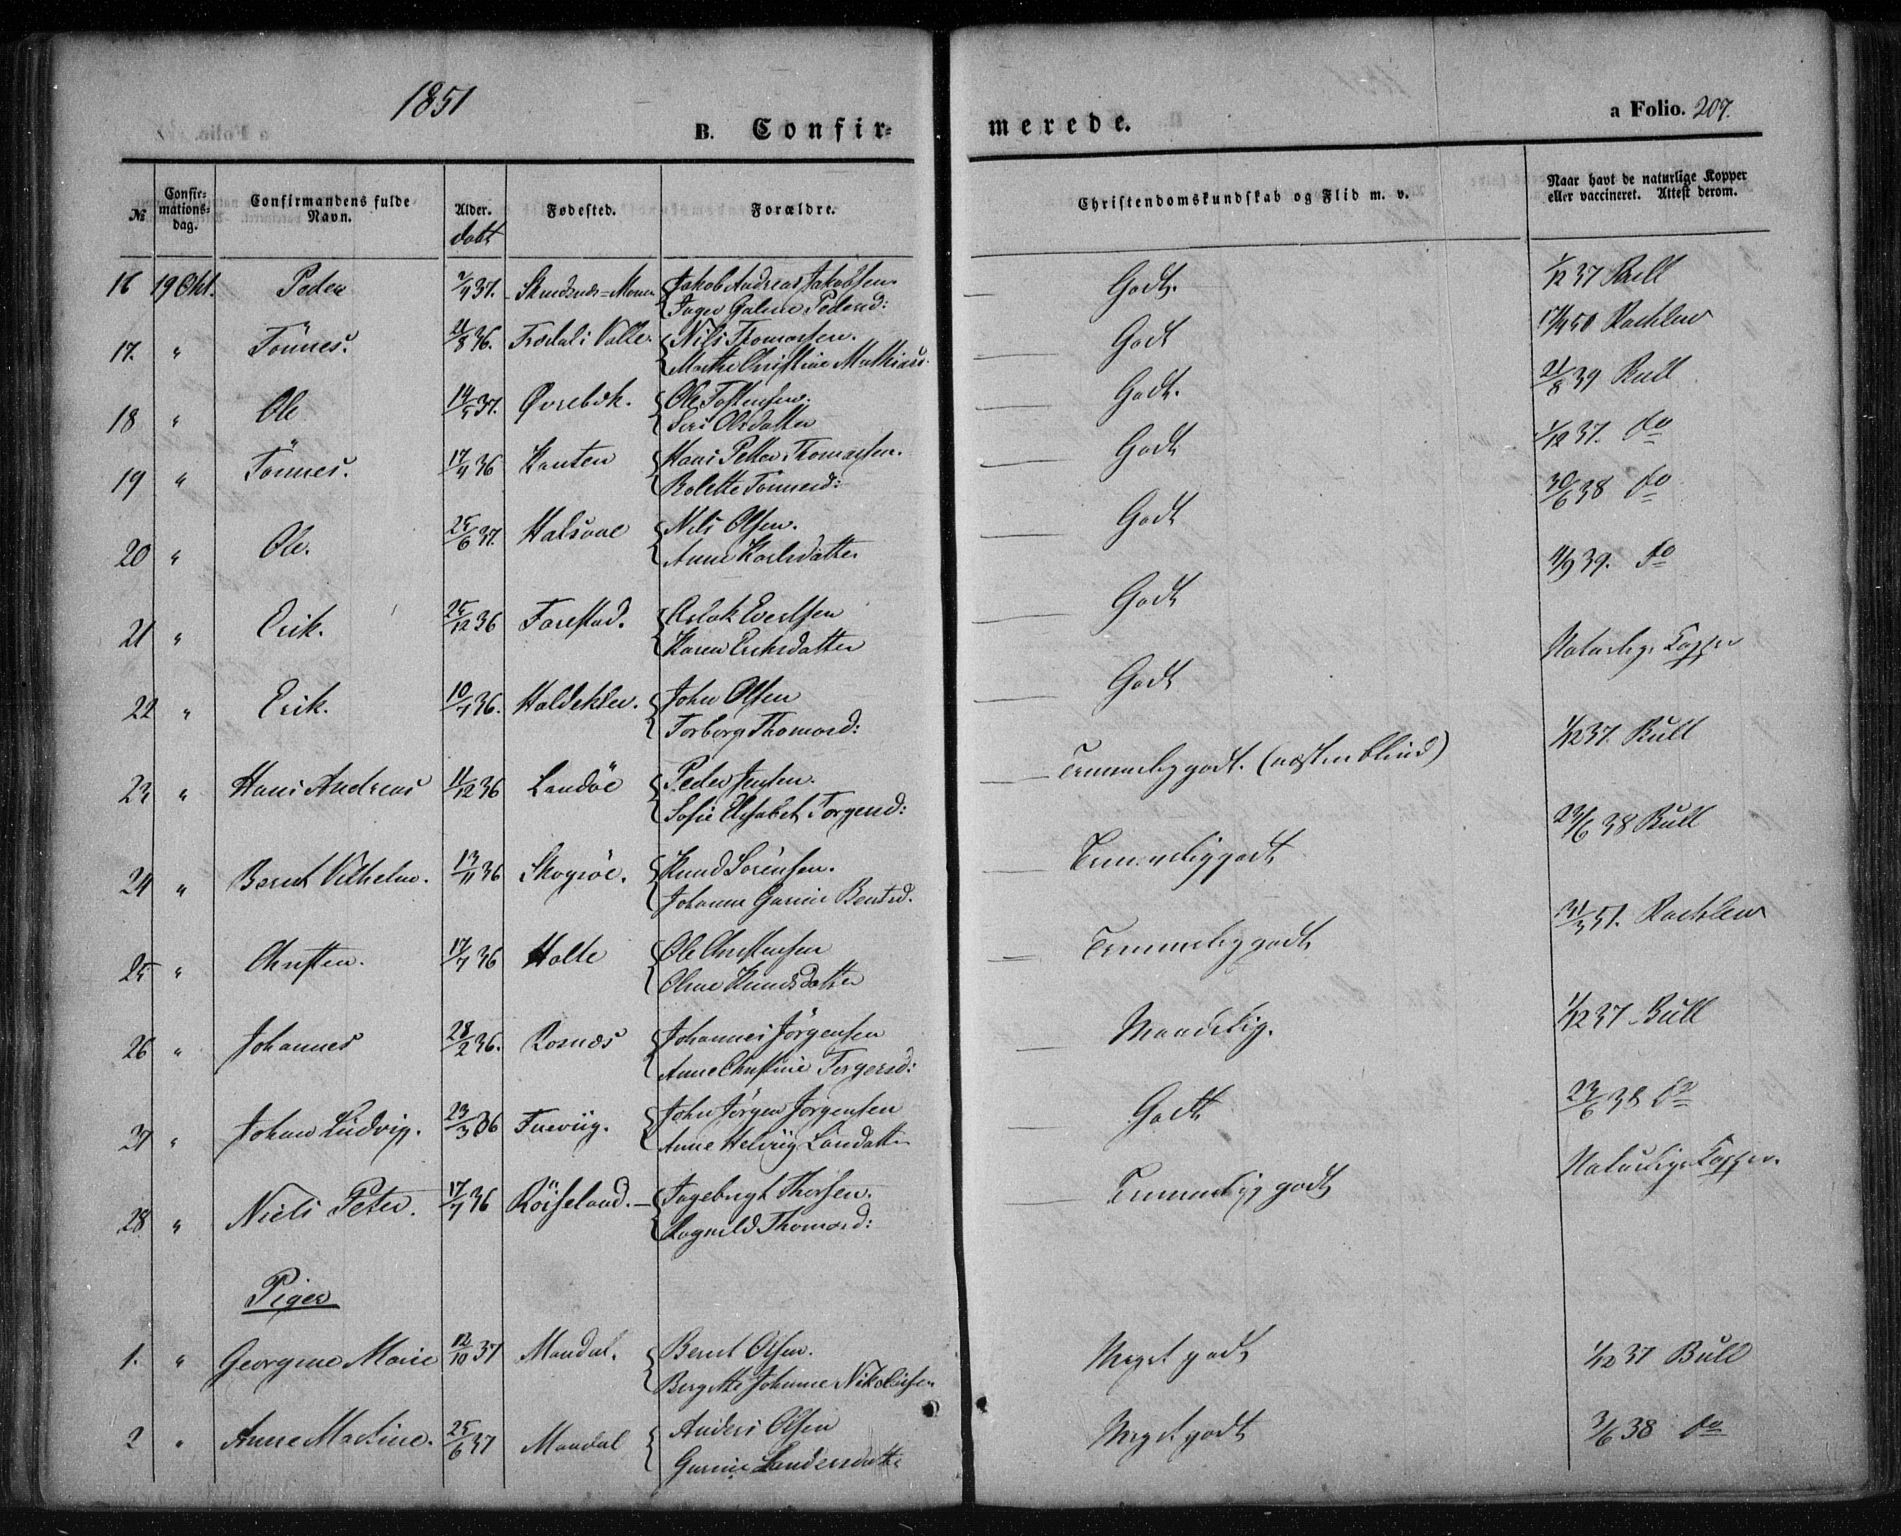 1851
B. Confir=
merede.
a Folio. 207.
№
Confir=
mations=
dag.
Confirmandens fulde
Navn.
Alder.
døbt
Fødested.
Forældre.
Christendomskundskab og Flid m. v.
Naar havt de naturlige Kopper
eller vaccineret. Attest derom.
16 19 Okt. Peder 37. Jakob Andreas Jakobsen Godt. 1/12 37 Bull
Inger Pedersd:
17. " Tönnes. 21/8 36. Valle. Nils Tomassen. Godt 17/4 50 Rachlew
Marthe Christine Mathiasd.
18 " Ole 14/5 37. Øvrebøk. Ole Godt. 21/8 39 Bull
Siri Olsdatter
19 " Tönnes. 17/9 36 Hans Petter Thomassen. Godt 1/12 37. do
Rolette Tönnesd:
20 " Ole. 25/6 37. Halsaae Nils Olsen. Godt 30/6 38 do
Anne Karlsdatter
21 " Erik. 25/12 36 Farestad. Aslak Evertsen Godt 11/9 39. do
Karen Eriksdatter
22 " Erik. 36. John Olsen Godt Naturlige Kopper
Torborg Thomasd:
23 " Hans Andreas 11/12 36 Landöe Peder Jensen. Temmelig godt. (næsten blind) 1/12 37. Bull
Sofie Elisabet Torgersd:
24 " Bernt Vilhelm. 13/11 36 Skogsöe. Knud Sörensen. Temmelig godt 23/6 38 Bull
Johanne Gurine Bentsd.
25 " Christen. 17/7 36 Holte Ole Christensen Temmelig godt 31/3 51. Rachlew
Oline Knudsdatter
26 " Johannes 28/2 36. Rosnæs Johannes Jörgensen Maadelig. 1/12 37 Bull
Anne Christine Torgersd:
27 " Johan Ludvig. 23/3 36 John Jörgen Jörgensen Godt 23/6 38 do
Anne Helvig
28 " Niels Peter. 17/7 36 Röiseland. Ingebrigt Thorsen. Temmelig godt Naturlige Kopper.
Ragnild Thomasd:
Piger
1. " Georgine Marie 12/10 37 Mandal. Bernt Olsen. Meget godt 1/12 37 Bull
Bergitte Johanne Nikolaisen
2 " Anne Martine. 25/6 37 Mandal Anders Olsen Meget godt 3/6 38 do
Gurine